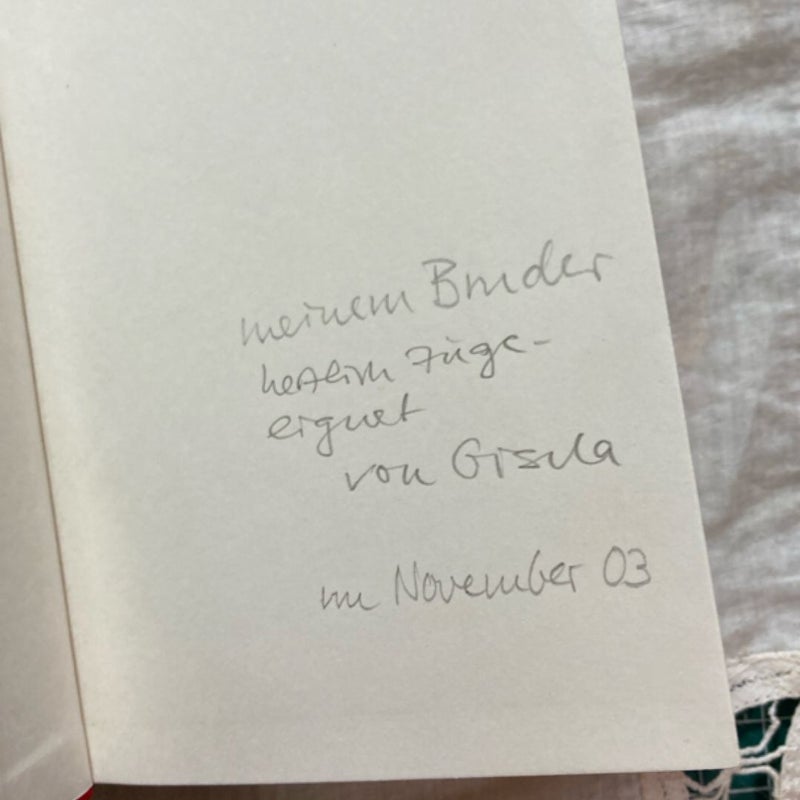 meinem Bruder
herzlich zuge-
eignet
von Gisela
im November 03